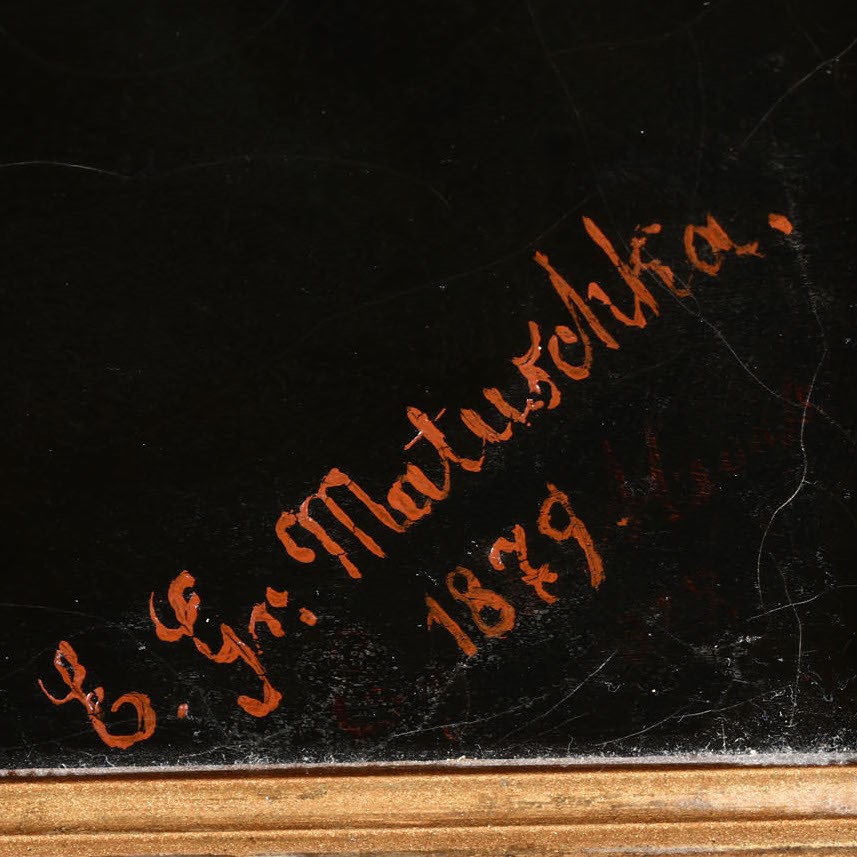 E. Gr: Matuschka.
1879